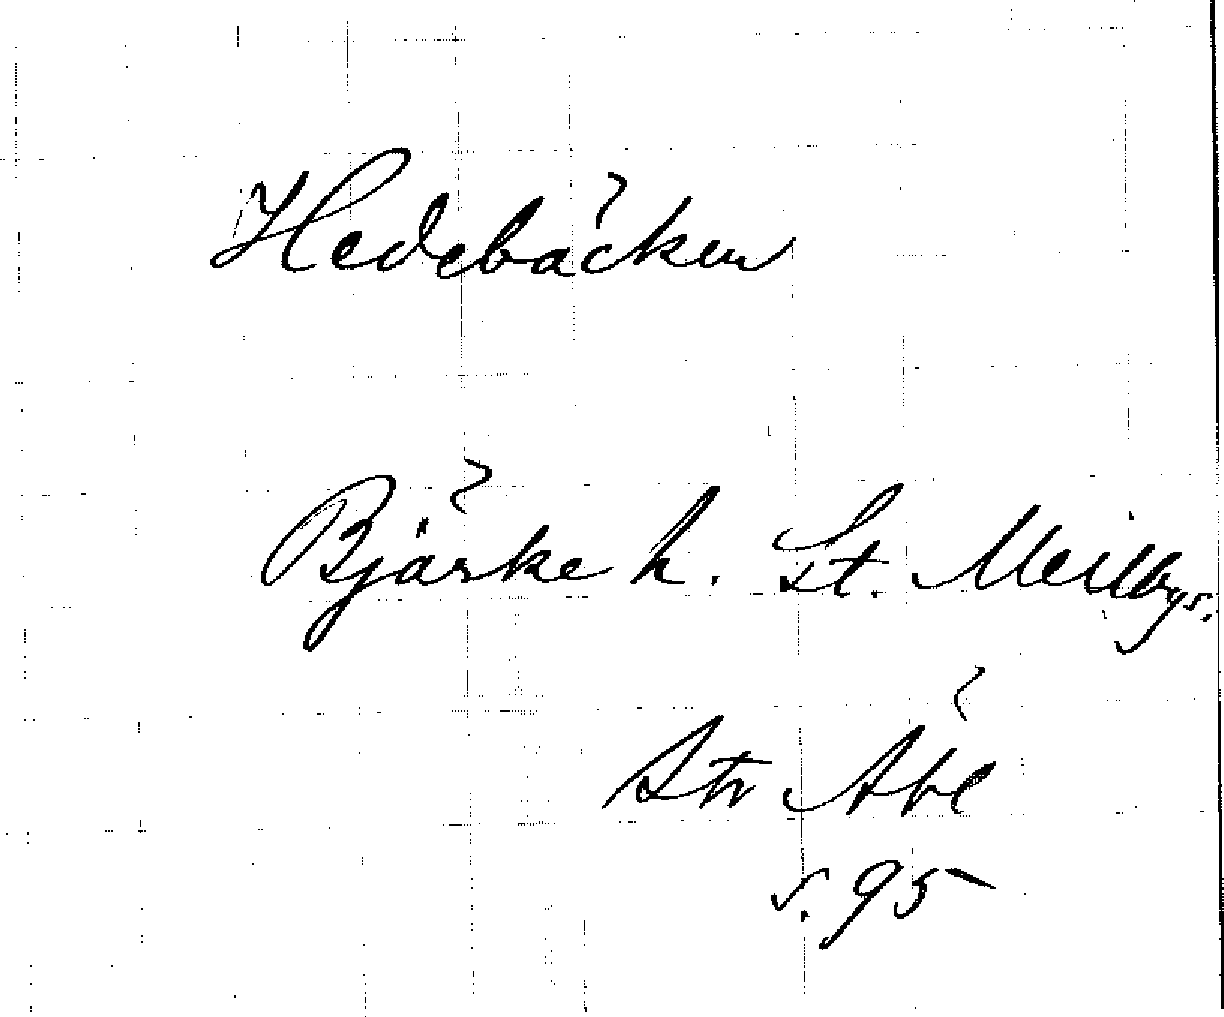 Hedebäcken
Bjärke h. St. Mellby s.
s. 95